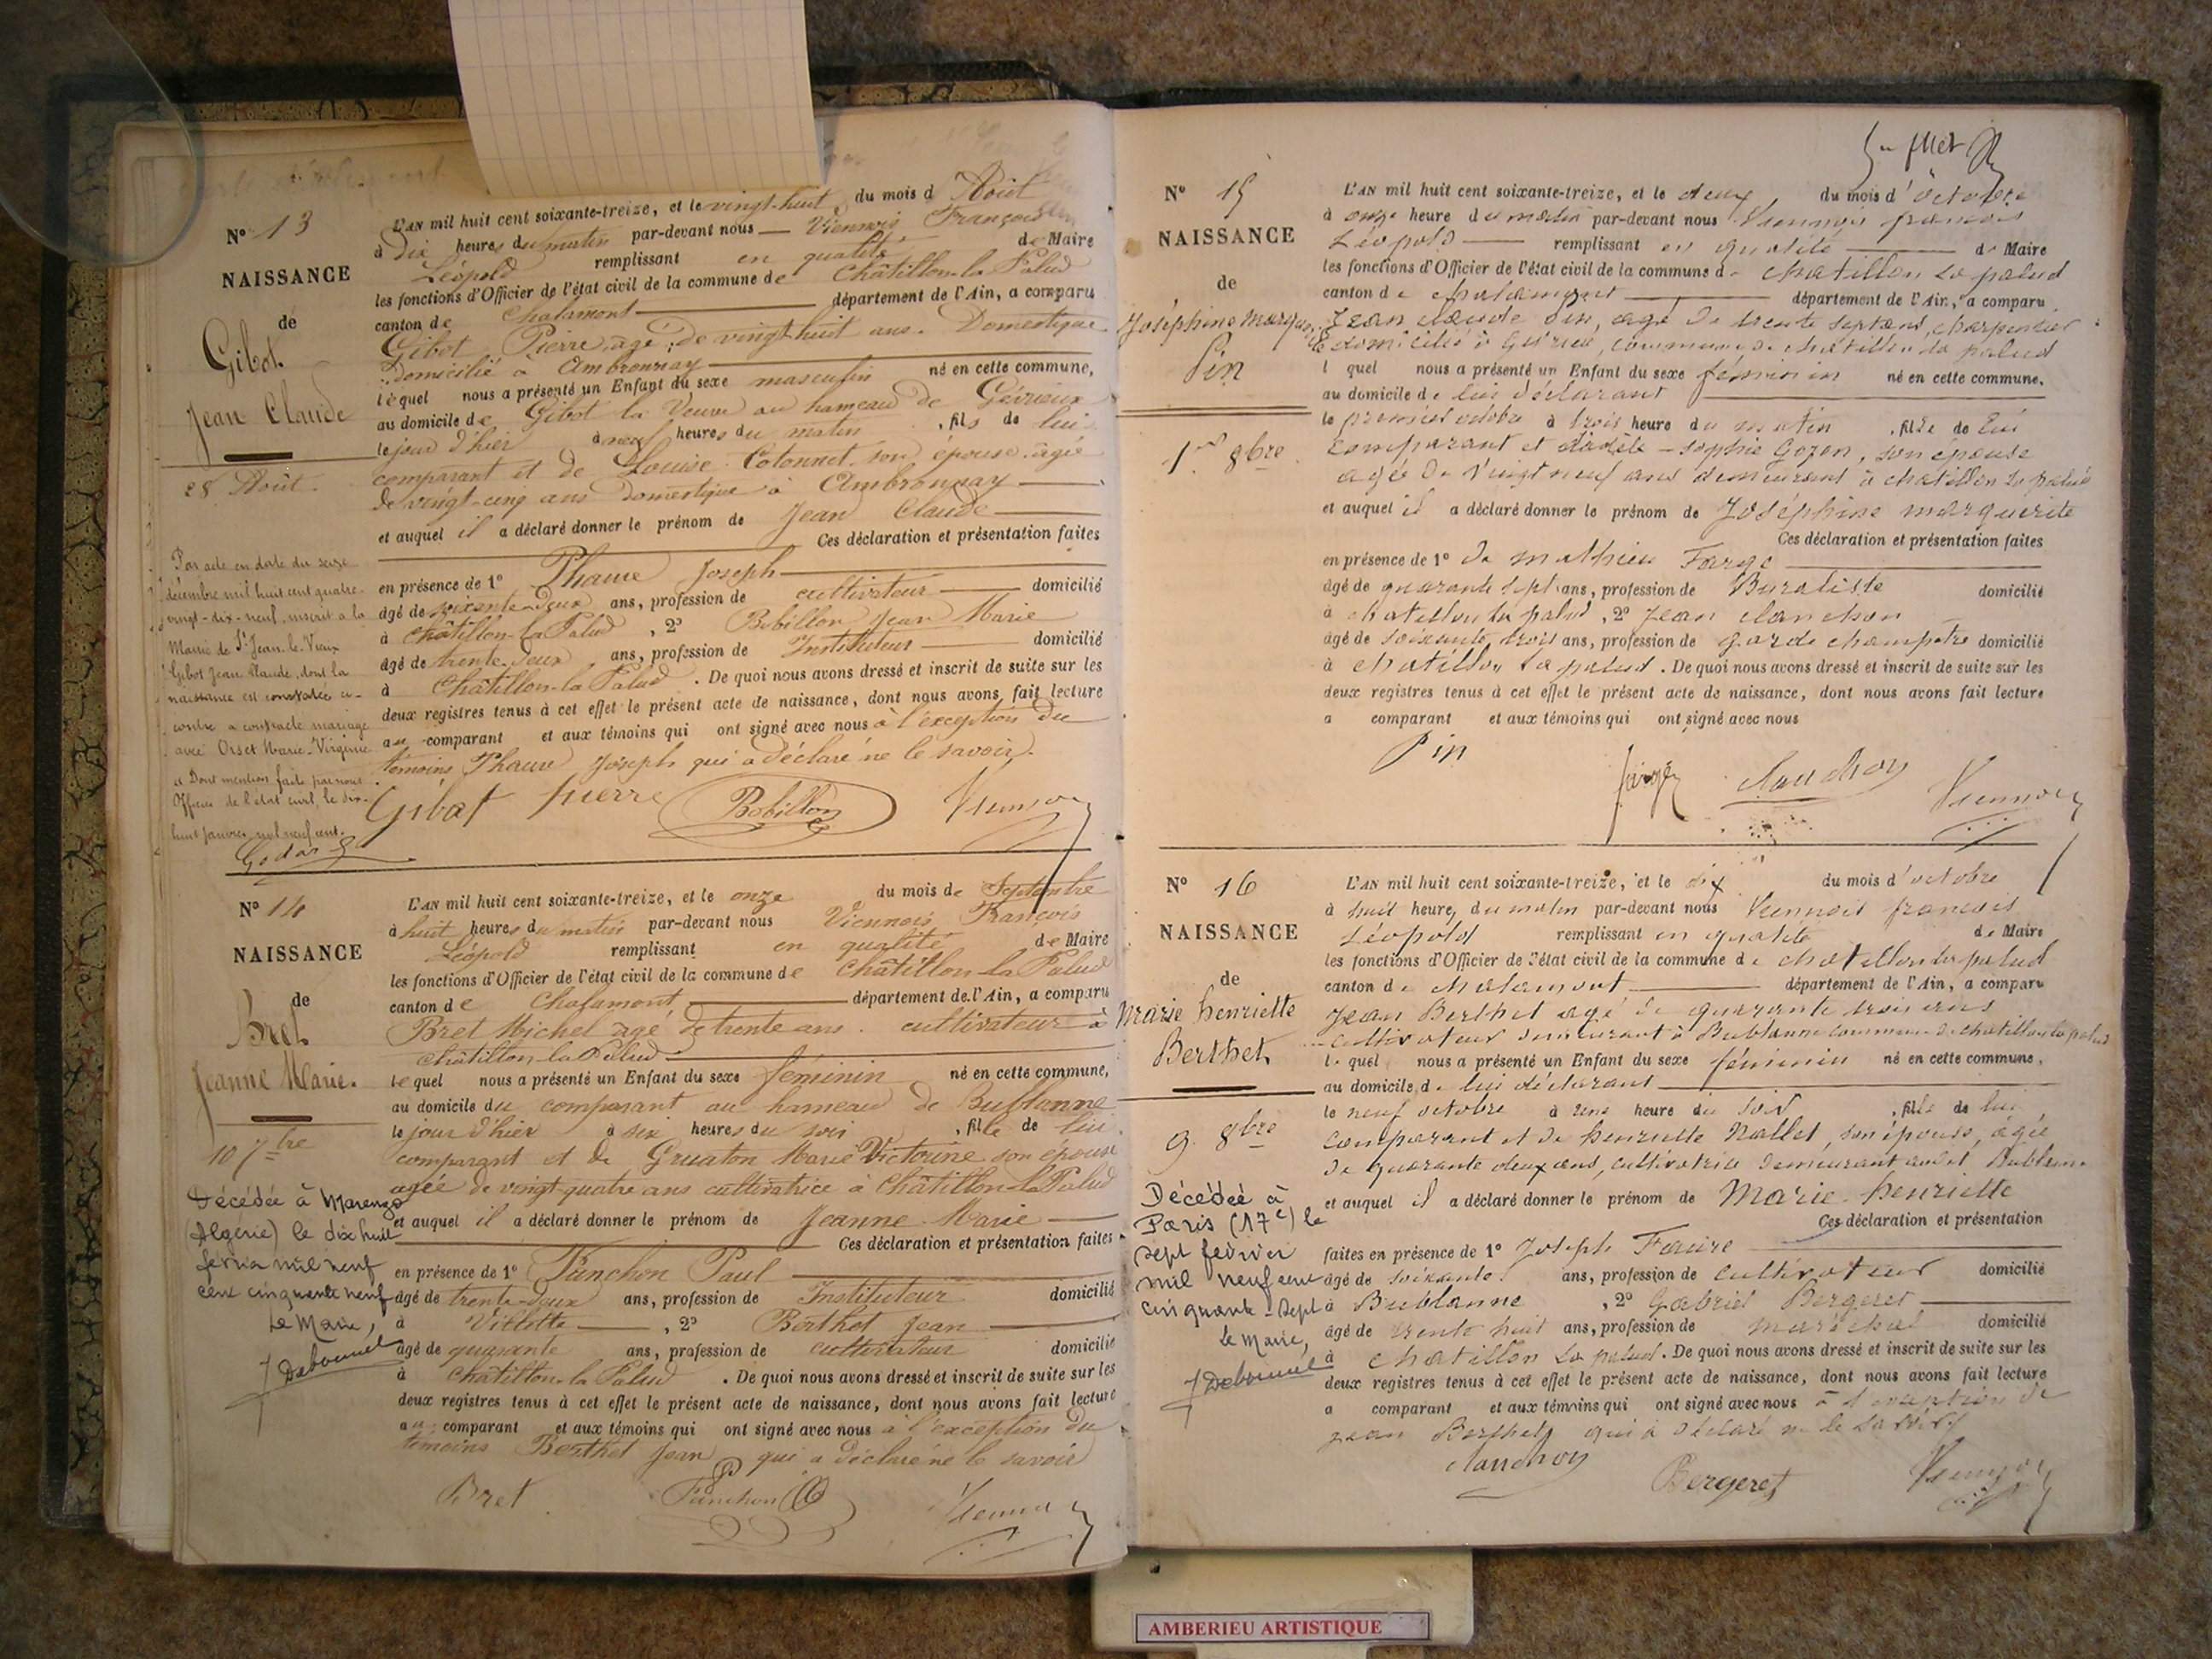 N° 13
NAISSANCE
de
Gibot
Jean Claude
28 Août.
Par acte en date du seize
décembre mil huit cent quatre-
vingt-dix-neuf, inscrit à la
Mairie de St Jean-le-Vieux
Gibot Jean Claude, dont la
naissance est constatée ci-
contre a contracté mariage
avec Orset Marie-Virginie
Dont mention faite par nous
Officier de l'état civil, le dix-
huit janvier mil neuf cent.
L'AN mil huit cent soixante-treize, et le vingt-huit du mois d'Août
à Dix heures du matin par-devant nous Viennois François
Léopold remplissant en qualité de Maire
les fonctions d'Officier de l'état civil de la commune de Châtillon-la-Palud
canton de Chalamont département de l'Ain, a comparu
Gibot Pierre, âgé de vingt-huit ans. Domestique
domicilié à Ambronnay
lequel nous a présenté un Enfant du sexe masculin né en cette commune,
au domicile de Gibot la Veuve au hameau de Gévrieux
le jour d'hier à neuf heures du matin, fils de lui
comparant et de Louise Cotonnet son épouse âgée
de vingt-cinq ans Domestique à Ambronnay
et auquel il a déclaré donner le prénom de Jean Claude
Ces déclaration et présentation faites
en présence de 1° Joseph
âgé de soixante-deux ans, profession de cultivateur domicilié
à Châtillon-la-Palud, 2° Bobillon Jean Marie
âgé de trente-deux ans, profession de Instituteur domicilié
à Châtillon-la-Palud. De quoi nous avons dressé et inscrit de suite sur les
deux registres tenus à cet effet le présent acte de naissance, dont nous avons fait lecture
au comparant et aux témoins qui ont signé avec nous à l'exception du
témoins Joseph qui a déclaré ne le savoir.
Gibot pierre Bobillon Viennois
N° 14
NAISSANCE
de
Bret
Jeanne Marie.
10 7bre
Décédée à Marengo
(Algérie) le dix huit
février mil neuf
cent cinquante neuf
Le Maire,
L'AN mil huit cent soixante-treize, et le onze du mois de Septembre
à huit heures du matin par-devant nous Viennois François
Léopold remplissant en qualité de Maire
les fonctions d'Officier de l'état civil de la commune de Châtillon-la-Palud
canton de Chalamont département de l'Ain, a comparu
Bret Michel âgé de trente ans. cultivateur à
Châtillon-la-Palud
lequel nous a présenté un Enfant du sexe féminin né en cette commune,
au domicile du comparant au hameau de Bublanne
le jour d'hier à six heures du soir, fille de lui
comparant et de Gruaton Marie Victorine son épouse
agée de vingt-quatre ans cultivatrice à Châtillon-la-Palud
et auquel il a déclaré donner le prénom de Jeanne Marie
Ces déclaration et présentation faites
en présence de 1° Paul
âgé de trente-deux ans, profession de Instituteur domicilié
à Villette, 2° Berthet Jean
âgé de quarante ans, profession de cultivateur domicilié
à Châtillon-la-Palud. De quoi nous avons dressé et inscrit de suite sur les
deux registres tenus à cet effet le présent acte de naissance, dont nous avons fait lecture
au comparant et aux témoins qui ont signé avec nous à l'exception du
témoins Berthet Jean qui a déclaré ne le savoir
Bret Viennois
N° 15
NAISSANCE
de
Joséphine Marguerite
Pin
1er 8bre
L'AN mil huit cent soixante-treize, et le deux du mois d'octobre
à onze heure du matin par-devant nous Viennois francois
Léopold remplissant en qualité de Maire
les fonctions d'Officier de l'état civil de la commune de chatillon la palud
canton de chalamont département de l'Ain, a comparu
Jean claude Pin, agé de trente sept ans, charpentier
domicilié à Gévrieu, commune de chatillon la palud
lequel nous a présenté un Enfant du sexe féminin né en cette commune,
au domicile de lui déclarant
le premier octobre à trois heure du matin, fille de lui
comparant et d'adèle-sophie Gozon, son épouse
agée de vingt neuf ans demeurant à chatillon la palud
et auquel il a déclaré donner le prénom de Joséphine marguerite
Ces déclaration et présentation faites
en présence de 1° de mathieu Farge
âgé de quarante sept ans, profession de Buraliste domicilié
à chatillon la palud, 2° Jean clanchon
âgé de soixante trois ans, profession de garde champêtre domicilié
à chatillon la palud. De quoi nous avons dressé et inscrit de suite sur les
deux registres tenus à cet effet le présent acte de naissance, dont nous avons fait lecture
a comparant et aux témoins qui ont signé avec nous
Pin farge clanchon Viennois
N° 16
NAISSANCE
de
Marie henriette
Berthet
9 8bre
Décédée à
Paris (17e) le
sept février
mil neuf cent
cinquante-sept
Le Maire,
L'AN mil huit cent soixante-treize, et le dix du mois d'octobre
à huit heures du matin par-devant nous Viennois francois
Léopold remplissant en qualité de Maire
les fonctions d'Officier de l'état civil de la commune de chatillon la palud
canton de chalamont département de l'Ain, a comparu
Jean Berthet agé de quarante trois ans
cultivateur demeurant à Bublanne commune de chatillon la palud
lequel nous a présenté un Enfant du sexe féminin né en cette commune,
au domicile de lui déclarant
le neuf octobre à une heure du soir, fille de lui
comparant et de henriette Nallet, son épouse, agée
de quarante deux ans, cultivatrice demeurant audit Bublanne
et auquel il a déclaré donner le prénom de Marie-henriette
Ces déclaration et présentation
faites en présence de 1° Joseph Faure
âgé de soixante ans, profession de cultivateur domicilié
à Bublanne, 2° Gabriel Bergeret
âgé de trente huit ans, profession de maréchal domicilié
à chatillon la palud. De quoi nous avons dressé et inscrit de suite sur les
deux registres tenus à cet effet le présent acte de naissance, dont nous avons fait lecture
a comparant et aux témoins qui ont signé avec nous à l'exception de
jean Berthet qui à déclaré ne le savoir
clanchon Bergeret Viennois
AMBERIEU ARTISTIQUE